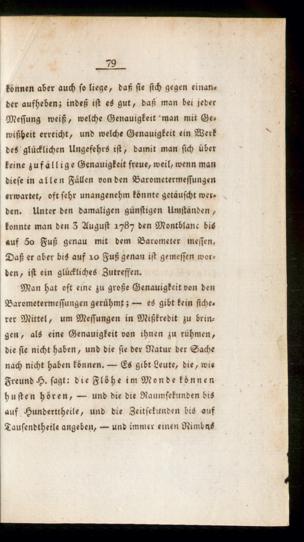 79
können aber auch so liege, daß sie sich gegen einan-
der aufheben; indeß ist es gut, daß man bei jeder
Messung weiß, welche Genauigkeit man mit Ge-
wißheit erreicht, und welche Genauigkeit ein Werk
des glücklichen Ungefehrs ist, damit man sich über
keine zufällige Genauigkeit freue, weil, wenn man
diese in allen Fällen von den Barometermessungen
erwartet, oft sehr unangenehm könnte getäuscht wer-
den. Unter den damaligen günstigen Umständen,
konnte man den 3 August 1787 den Montblanc bis
auf 50 Fuß genau mit dem Barometer messen.
Daß er aber bis auf 10 Fuß genau ist gemessen wor-
den, ist ein glückliches Zutreffen.
Man hat oft eine zu große Genauigkeit von den
Barometermessungen gerühmt; — es gibt kein siche-
rer Mittel, um Messungen in Mißkredit zu brin-
gen, als eine Genauigkeit von ihnen zu rühmen,
die sie nicht haben, und die sie der Natur der Sache
nach nicht haben können. — Es gibt Leute, die, wie
Freund H. sagt: die Flöhe im Monde können
husten hören, — und die die Raumsekunden bis
auf Hunderttheile, und die Zeitsekunden bis auf
Tausendtheile angeben, — und immer einen Nimbus